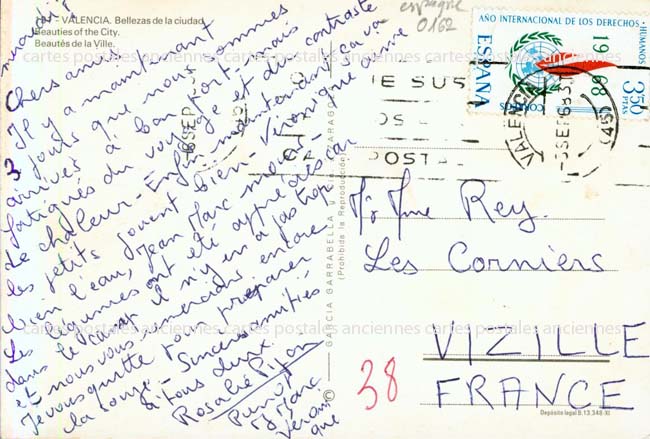 mercredi
- VALENCIA. Bellezas de la ciudad.
Beauties of the City.
Beautés de la Ville.
Chers amis
Il y a maintenant
3 jours que nous sommes
arrivés à bon port, mais
fatigués du voyage et du contraste
de chaleur - Enfin maintenant ça va
les petits jouent bien. Véronique aime
bien l'eau, Jean Marc moins -
Les légumes ont été appréciés car
dans le camp il n'y en a pas trop
et nous vous remercions encore
Je vous quitte pour préparer
la soupe - Sincères amitiés
à tous deux.
Rosalie Pijon
J Marc
Véronique
GARCIA GARRABELLA Y
ZARAGOZA
(Prohibida la Reproducción)
espagne
0162
AÑO INTERNACIONAL DE LOS DERECHOS HUMANOS
1968
ESPAÑA
CORREOS
3,50
PTAS
VALENCIA
SEP 68
(45)
SEP
E SUS
OS
POSTA
Mr Mme Rey.
Les Corniers
VIZILLE
38
FRANCE
Depósito legal B. 13.348-XI
cartes postales anciennes cartes postales anciennes cartes postales anciennes
cartes postales anciennes cartes postales anciennes cartes postales anciennes